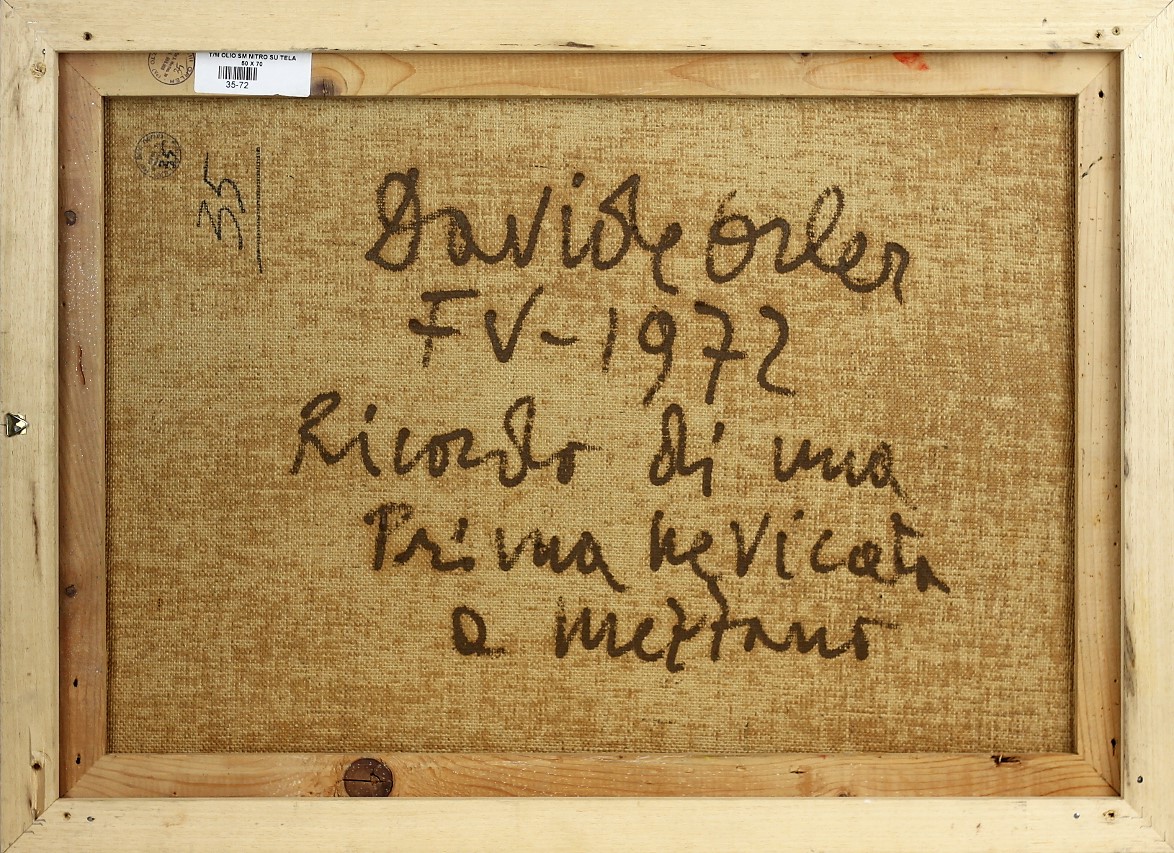 T/M OLIO SM NITRO SU TELA
50 X 70
35-72
35
35
Davide Orler
FV-1972
Ricordo di una
Prima nevicata
a Mezzano